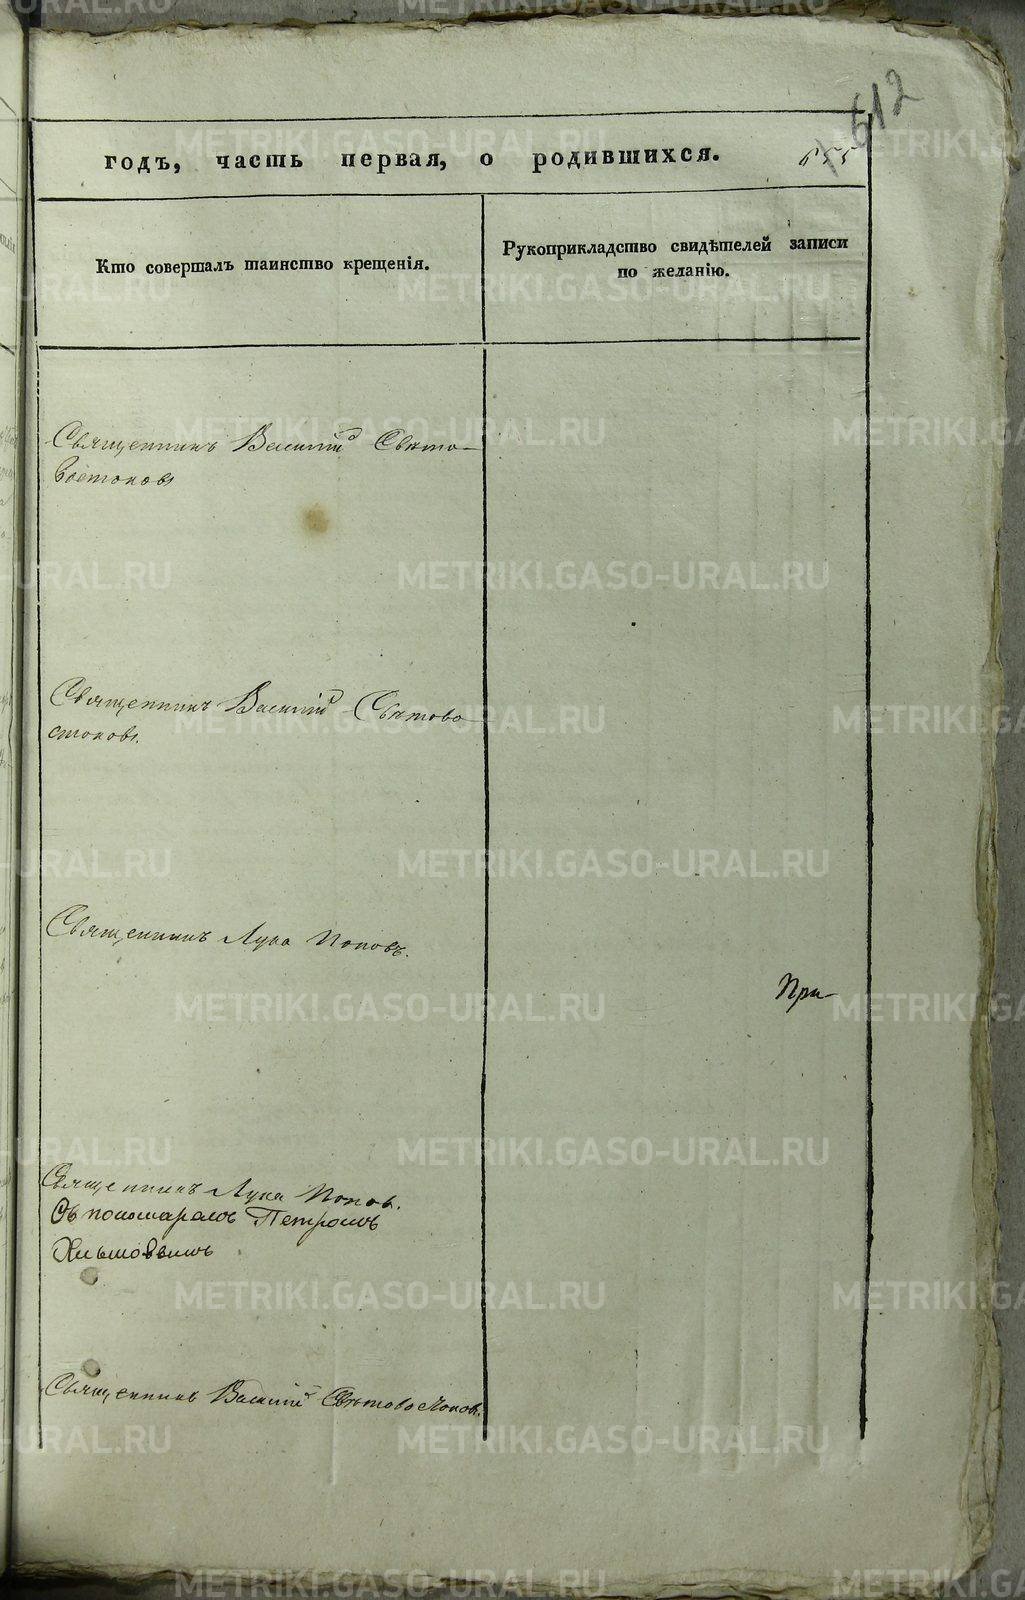 612
годъ, часть первая, о родившихся.
655
Кто совершалъ таинство крещенія.
Рукоприкладство свидѣтелей записи
по желанію.
Священникъ Василій Свѣто-
востоковъ
Священникъ Василій Свѣтово
стоковъ.
Священникъ Лука Поповъ.
При-
Священникъ Лука Поповъ.
Съ пономаремъ Петромъ
Священникъ Василій Свѣтовостоковъ.
METRIKI.GASO-URAL.RU